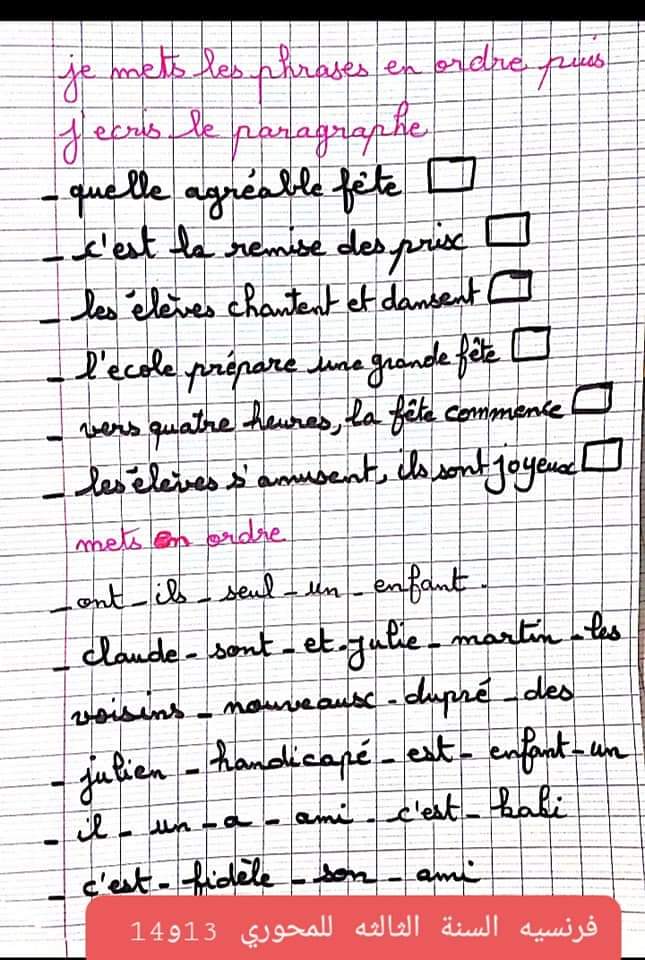 je mets les phrases en ordre puis
j'ecris le paragraphe
- quelle agréable fête
- c'est la remise des prix
- les élèves chantent et dansent
- l'ecole prépare une grande fête
- vers quatre heures, la fête commence
- les élèves s'amusent, ils sont joyeux
mets en ordre
- ont - ils - seul - un - enfant .
- claude - sont - et - julie - martin - les
voisins - nouveaux - dupré - des
- julien - handicapé - est - enfant - un
- il - un - a - ami - c'est - kabi
- c'est - fidèle - son - ami
فرنسيه السنة الثالثه للمحوري 13و14